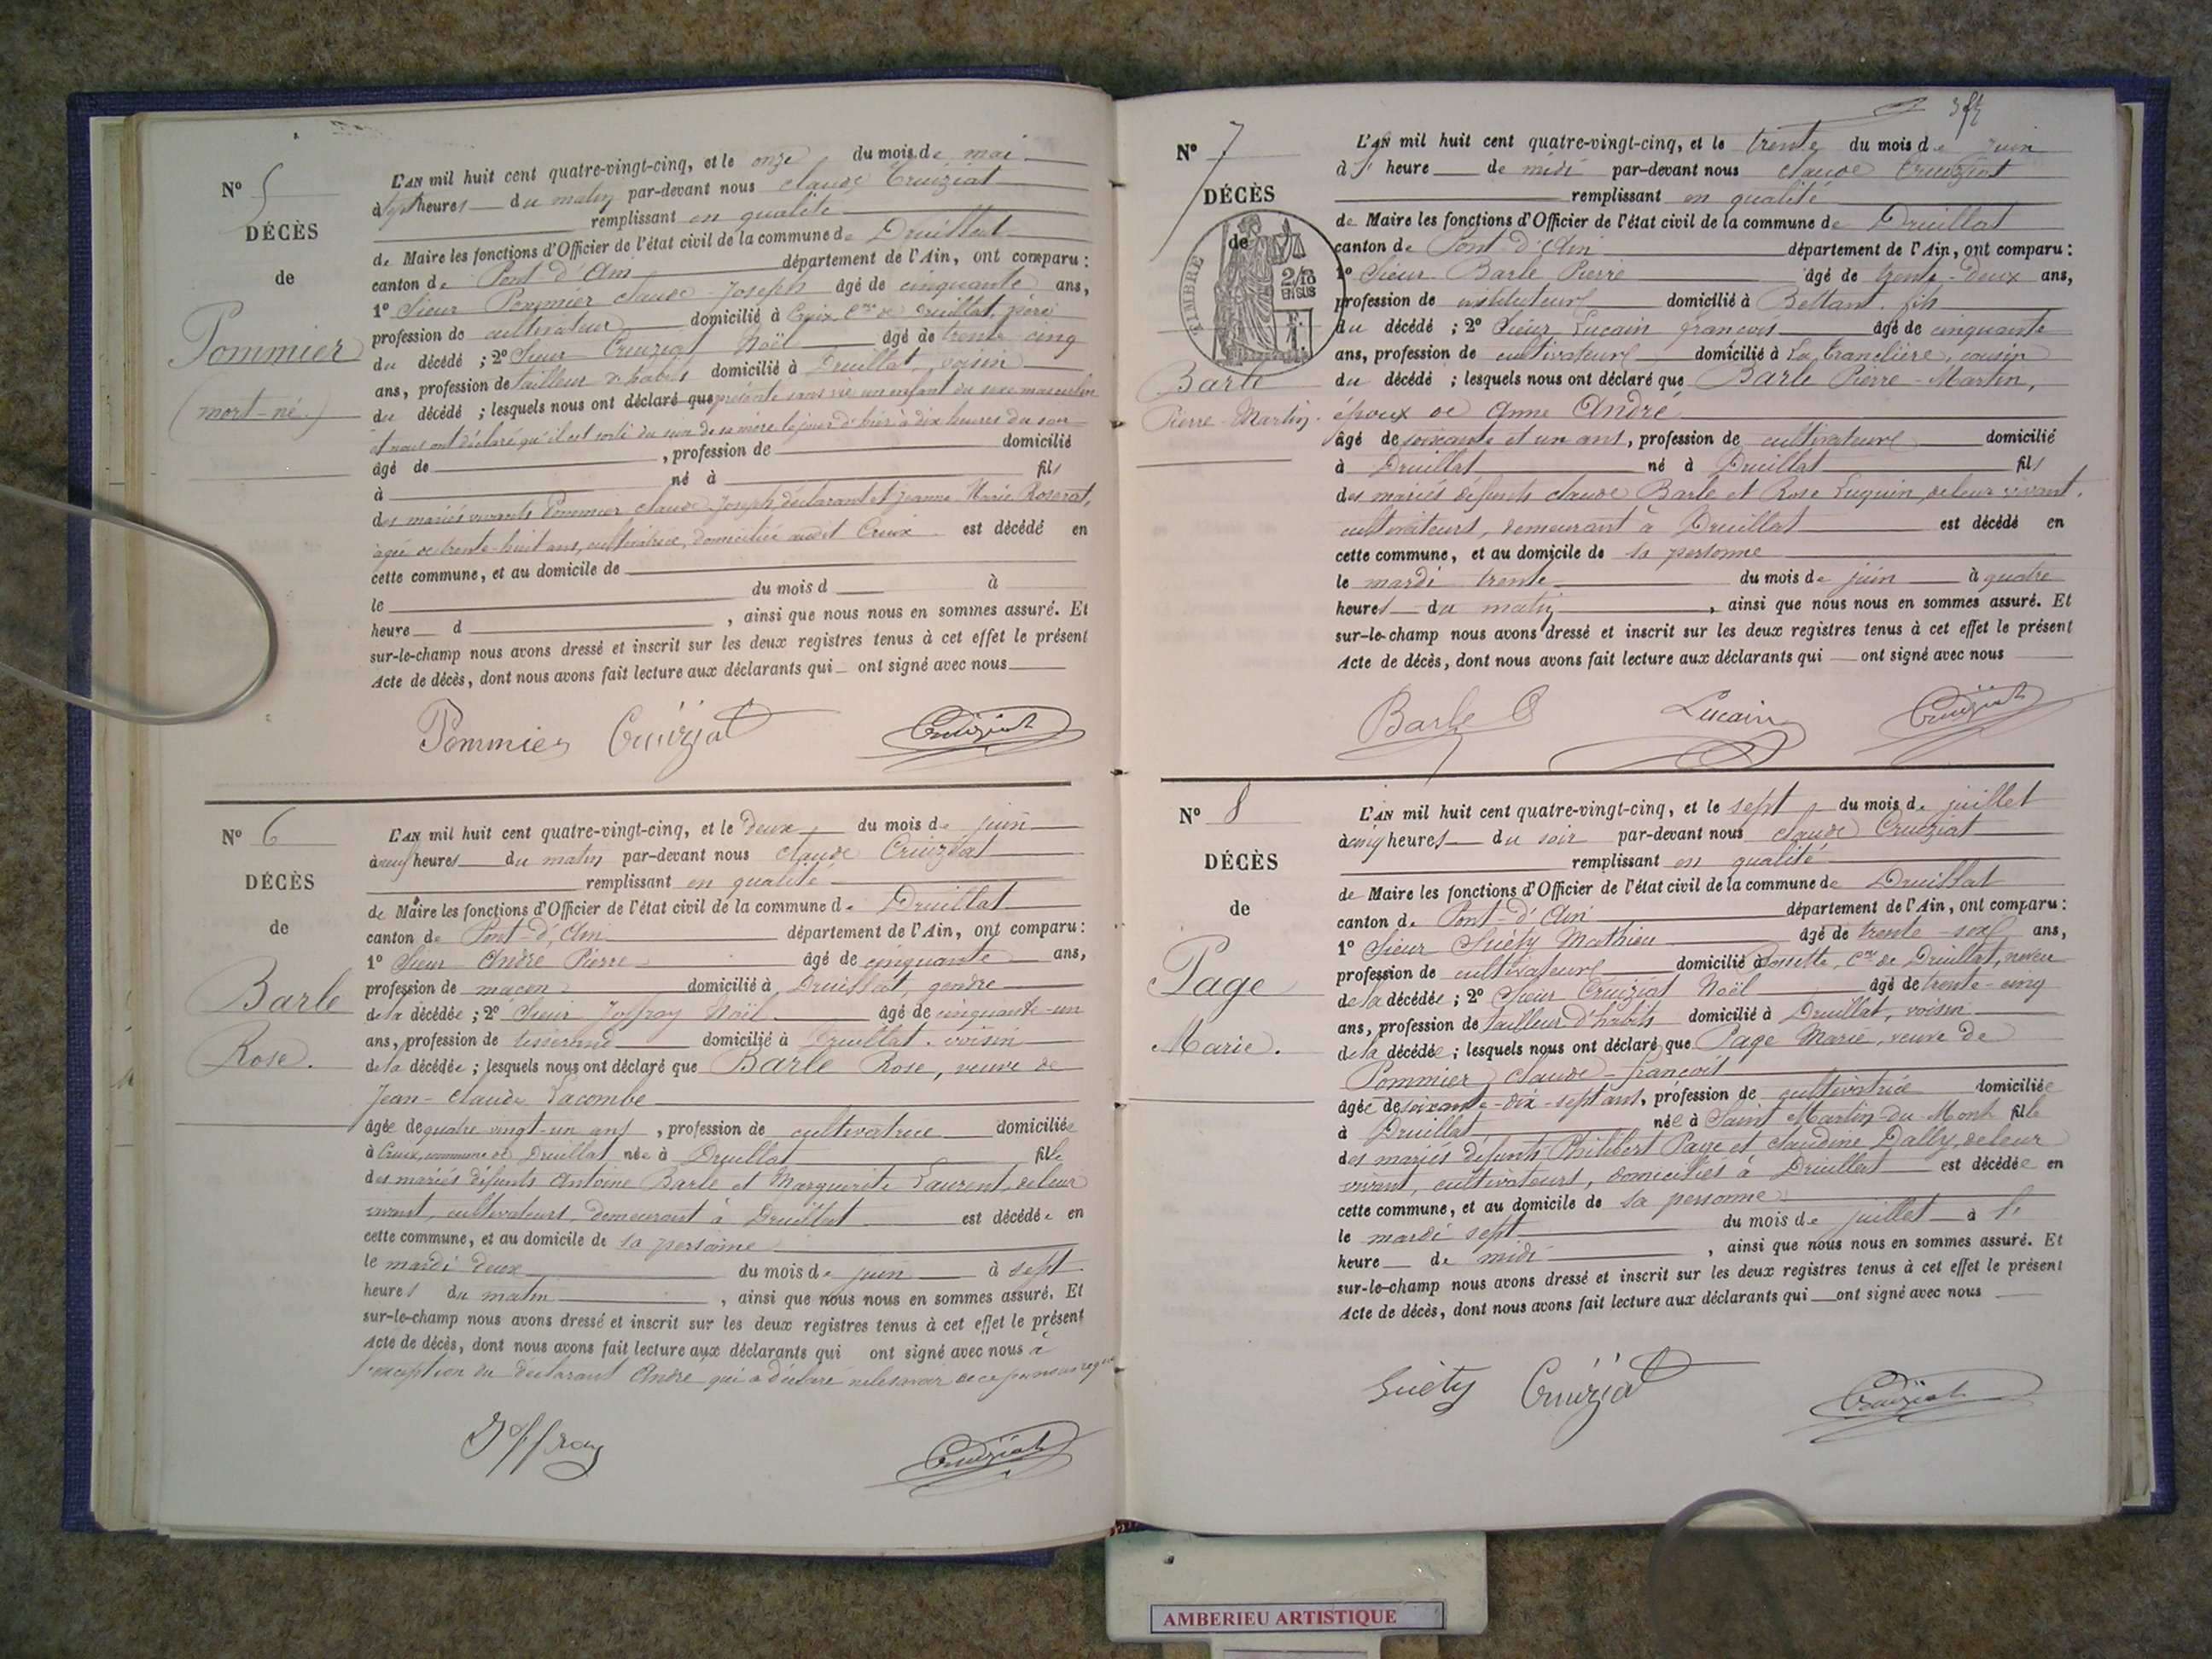 N° 5
DÉCÈS
de
Pommier
(mort-né)
L'AN mil huit cent quatre-vingt-cinq, et le onze du mois de mai
à sept heures du matin par-devant nous claude Cruiziat
remplissant en qualité
de Maire les fonctions d'Officier de l'état civil de la commune de Druillat
canton de Pont-d'Ain département de l'Ain, ont comparu :
1° Sieur Pommier claude-Joseph âgé de cinquante ans,
profession de cultivateur domicilié à Creix, Cne de Druillat, père
du décédé ; 2° Sieur Cruiziat Noël âgé de trente cinq
ans, profession de tailleur d'habits domicilié à Druillat, voisin
du décédé ; lesquels nous ont déclaré que présenté sans vie un enfant du sexe masculin
et nous ont déclaré qu'il est sorti du sein de sa mère le jour d'hier à dix heures du soir
âgé de , profession de domicilié
à né à fils
des mariés vivants Pommier claude-Joseph, déclarant et Jeanne-Marie Roserat,
âgée de trente-huit ans, cultivatrice, domiciliée audit Creix est décédé en
cette commune, et au domicile de
le du mois d à
heure d , ainsi que nous nous en sommes assuré. Et
sur-le-champ nous avons dressé et inscrit sur les deux registres tenus à cet effet le présent
Acte de décès, dont nous avons fait lecture aux déclarants qui ont signé avec nous
Pommier Cruiziat Cruiziat
N° 6
DÉCÈS
de
Barle
Rose.
L'AN mil huit cent quatre-vingt-cinq, et le deux du mois de juin
à neuf heures du matin par-devant nous claude Cruiziat
remplissant en qualité
de Maire les fonctions d'Officier de l'état civil de la commune de Druillat
canton de Pont-d'Ain département de l'Ain, ont comparu :
1° Sieur André Pierre âgé de cinquante ans,
profession de maçon domicilié à Druillat, gendre
de la décédée ; 2° Sieur Joffray Noël âgé de cinquante-un
ans, profession de tisserand domicilié à Druillat, voisin
de la décédée ; lesquels nous ont déclaré que Barle Rose, veuve de
Jean-claude Lacombe
âgée de quatre vingt-un ans , profession de cultivatrice domiciliée
à Creix, commune de Druillat née à Druillat fille
des mariés défunts Antoine Barle et Marguerite Laurent, de leur
vivant, cultivateurs, demeurant à Druillat est décédée en
cette commune, et au domicile de sa personne
le mardi deux du mois de juin à sept
heures du matin , ainsi que nous nous en sommes assuré. Et
sur-le-champ nous avons dressé et inscrit sur les deux registres tenus à cet effet le présent
Acte de décès, dont nous avons fait lecture aux déclarants qui ont signé avec nous à
l'exception du déclarant André qui a déclaré ne le savoir de ce par nous requis
Joffray Cruiziat
N° 7
DÉCÈS
de
TIMBRE
2/10
EN SUS
Barle
Pierre-Martin.
L'AN mil huit cent quatre-vingt-cinq, et le trente du mois de juin
à 1 heure de midi par-devant nous claude Cruiziat
remplissant en qualité
de Maire les fonctions d'Officier de l'état civil de la commune de Druillat
canton de Pont-d'Ain département de l'Ain, ont comparu :
1° Sieur Barle Pierre âgé de trente-deux ans,
profession de instituteur domicilié à Bettant, fils
du décédé ; 2° Sieur Lucain françois âgé de cinquante
ans, profession de cultivateur domicilié à La Tranclière, cousin
du décédé ; lesquels nous ont déclaré que Barle Pierre-Martin,
époux de Anne André
âgé de soixante et un ans, profession de cultivateur domicilié
à Druillat né à Druillat fils
des mariés défunts claude Barle et Rose Luquin, de leur vivant,
cultivateurs, demeurant à Druillat est décédé en
cette commune, et au domicile de sa personne
le mardi trente du mois de juin à quatre
heures du matin , ainsi que nous nous en sommes assuré. Et
sur-le-champ nous avons dressé et inscrit sur les deux registres tenus à cet effet le présent
Acte de décès, dont nous avons fait lecture aux déclarants qui ont signé avec nous
Barle Lucain Cruiziat
N° 8
DÉCÈS
de
Page
Marie.
L'AN mil huit cent quatre-vingt-cinq, et le sept du mois de juillet
à cinq heures du soir par-devant nous claude Cruiziat
remplissant en qualité
de Maire les fonctions d'Officier de l'état civil de la commune de Druillat
canton de Pont-d'Ain département de l'Ain, ont comparu :
1° Sieur Guéty Mathieu âgé de trente-six ans,
profession de cultivateur domicilié à Rossette, Cne de Druillat, neveu
de la décédée ; 2° Sieur Cruiziat Noël âgé de trente-cinq
ans, profession de tailleur d'habits domicilié à Druillat, voisin
de la décédée ; lesquels nous ont déclaré que Page Marie, veuve de
Pommier claude-françois
âgée de soixante-dix-sept ans, profession de cultivatrice domiciliée
à Druillat née à Saint Martin-du-Mont fille
des mariés défunts Philibert Page et claudine Dally, de leur
vivant, cultivateurs, domiciliés à Druillat est décédée en
cette commune, et au domicile de sa personne
le mardi sept du mois de juillet à 1
heure de midi , ainsi que nous nous en sommes assuré. Et
sur-le-champ nous avons dressé et inscrit sur les deux registres tenus à cet effet le présent
Acte de décès, dont nous avons fait lecture aux déclarants qui ont signé avec nous
Guéty Cruiziat Cruiziat
AMBERIEU ARTISTIQUE